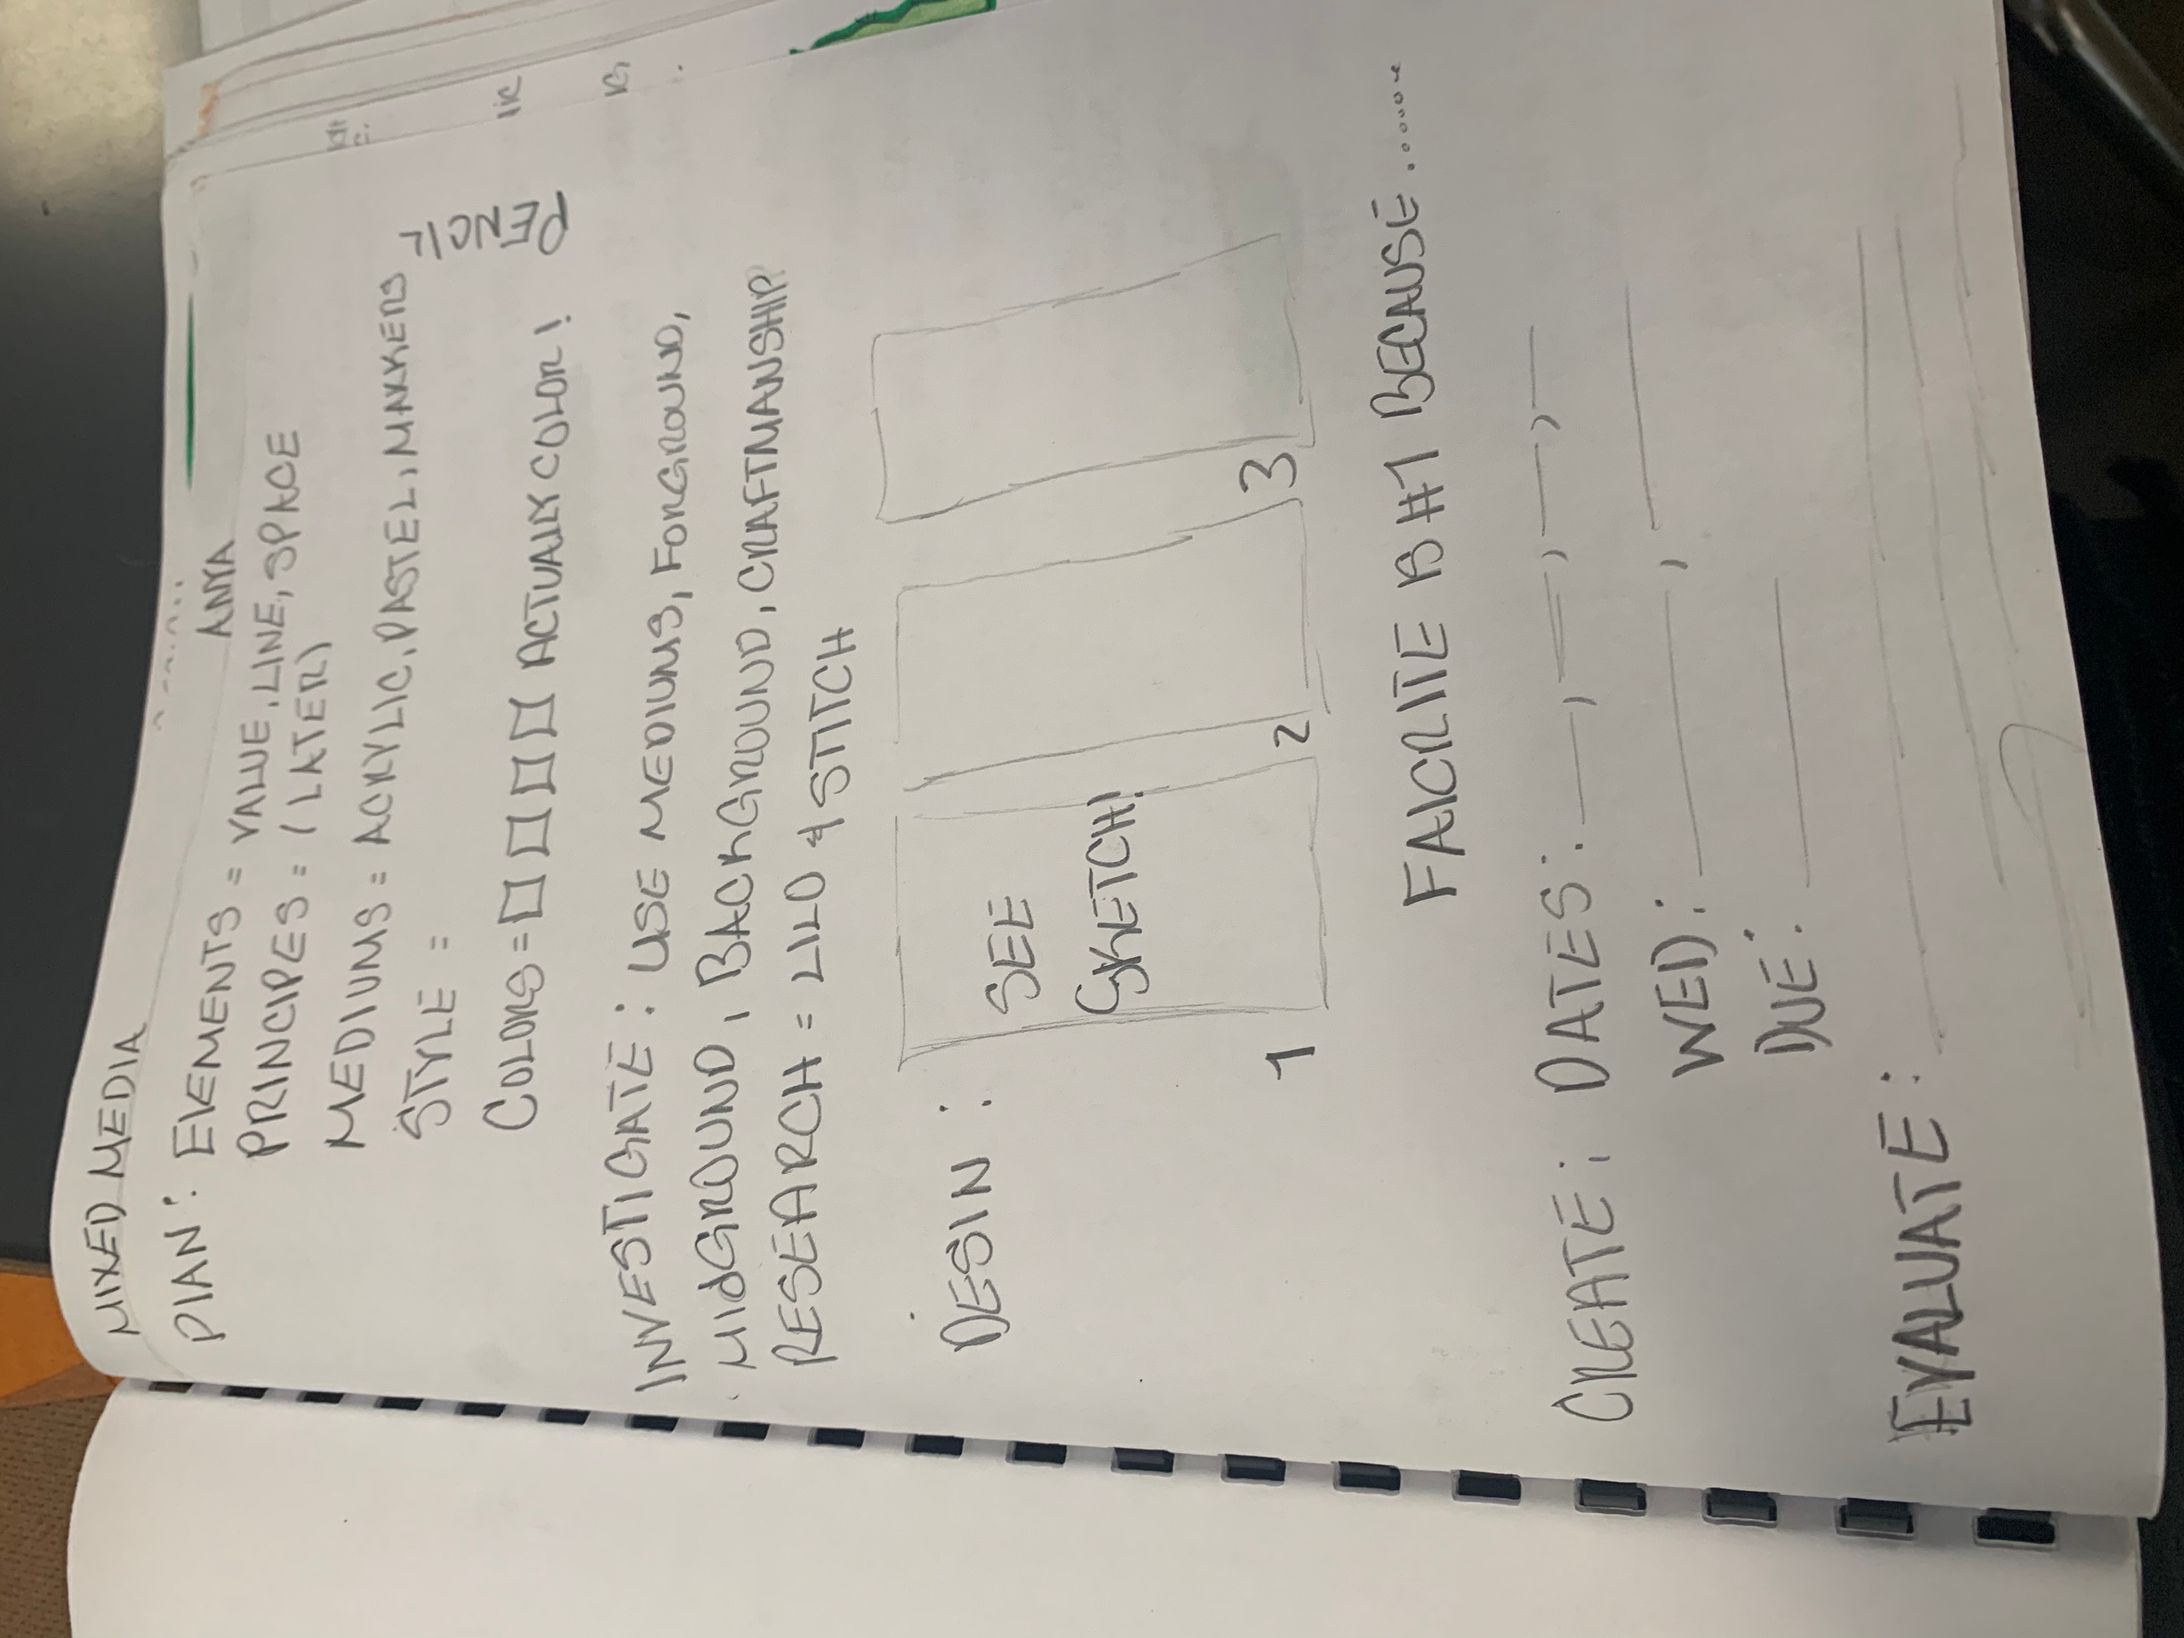 MIXED MEDIA
ANYA
PIAN: EVEMENTS = VALUE, LINE, SPACE
PRINCIPES = (LATER)
MEDIUMS = ACRYLIC, PASTEL, MARKERS
PENCIL
STYLE =
COLORS = ACTUALLY COLOR!
INVESTIGATE: USE MEDIUMS, FORGROUND,
MIdGROUND, BACKGROUND, CRAFTMANSHIP
RESEARCH = LILO & STITCH
DESIN:
SEE
SKETCH!
1
2
3
FAICRITE IS #1 BECAUSE.......
CREATE: DATES:
WED:
DUE:
EVALUATE: